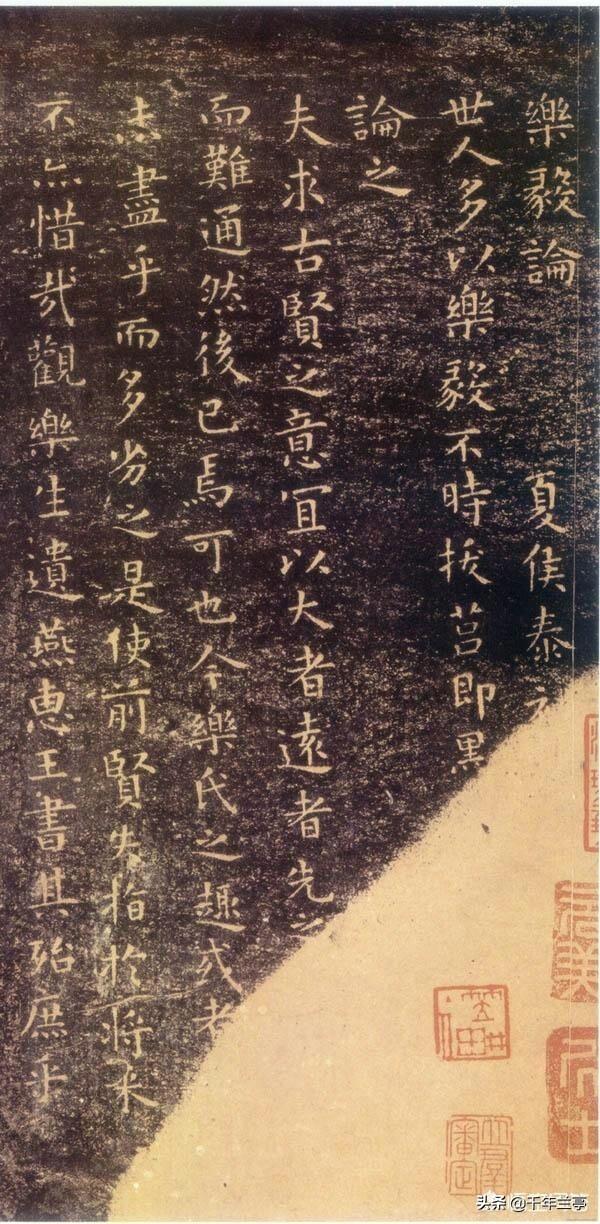 樂毅論 夏侯泰
世人多以樂毅不時拔莒即墨
論之
夫求古賢之意宜以大者遠者先之
而難通然後已焉可也今樂氏之趣或者
未盡乎而多劣之是使前賢失指於將來
不亦惜哉觀樂生遺燕惠王書其殆庶乎
头条 @千年兰亭